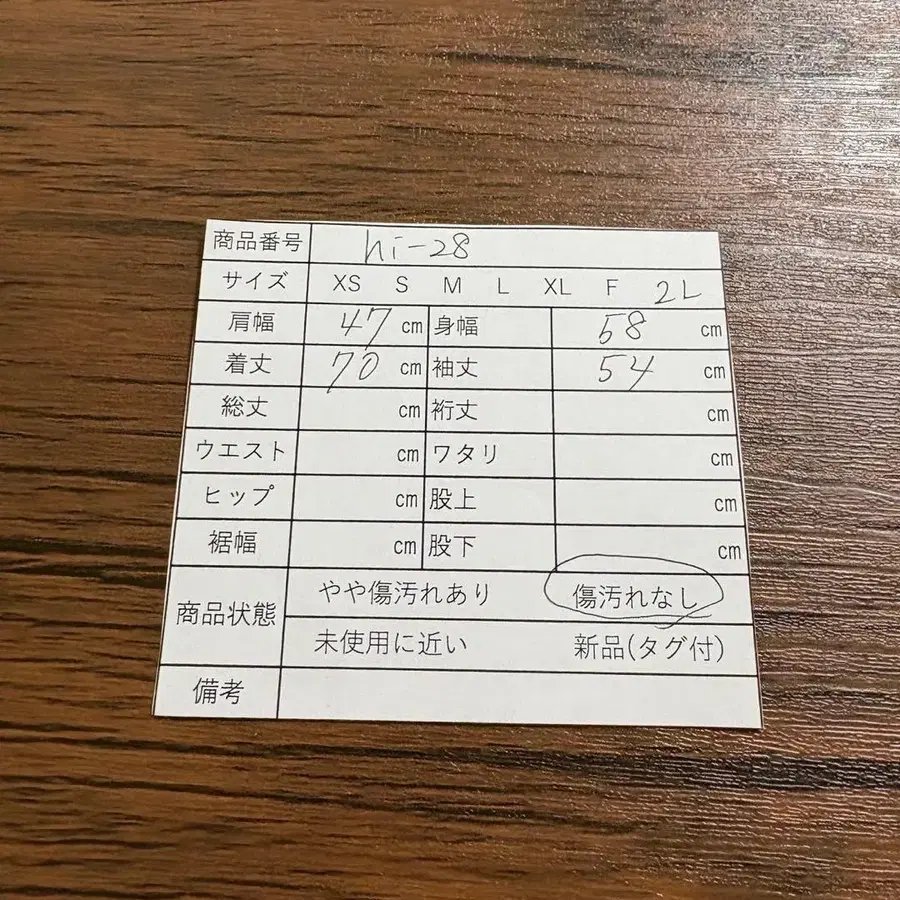 商品番号 hi-28
サイズ XS S M L XL F 2L
肩幅 47 cm 身幅 58 cm
着丈 70 cm 袖丈 54 cm
総丈 cm 裄丈 cm
ウエスト cm ワタリ cm
ヒップ cm 股上 cm
裾幅 cm 股下 cm
商品状態 やや傷汚れあり 傷汚れなし
未使用に近い 新品(タグ付)
備考